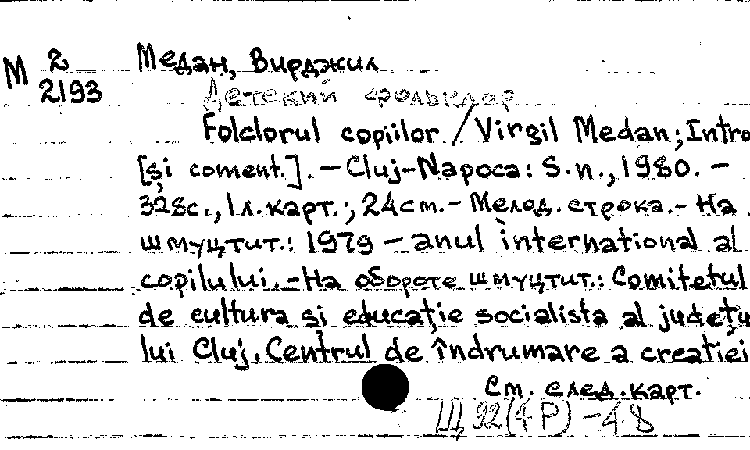 М 2
2193
Медан, Вирджил
Детский фольклор
Folclorul copiilor / Virgil Medan; Intro
[și coment.]. – Cluj-Napoca: S.n., 1980. –
328с., 1л.карт.; 24см. – Мелод. строка. – На
шмуцтит.: 1979 – anul international al
copilului. – На обороте шмуцтит.: Comitetul
de cultura și educație socialista al județu
lui Cluj. Centrul de îndrumare a creatiei
См. след. карт.
Щ 92(4Р) – 48